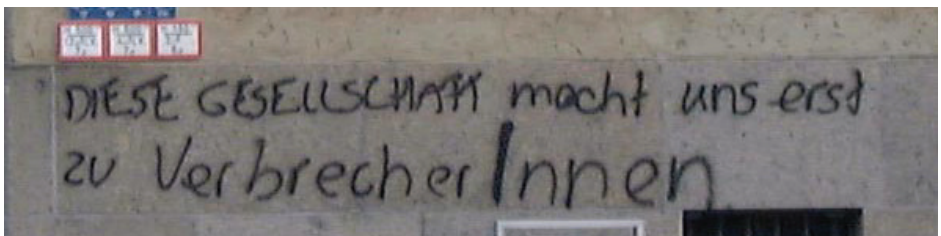 DIESE GESELLSCHAFT macht uns erst
zu VerbrecherInnen